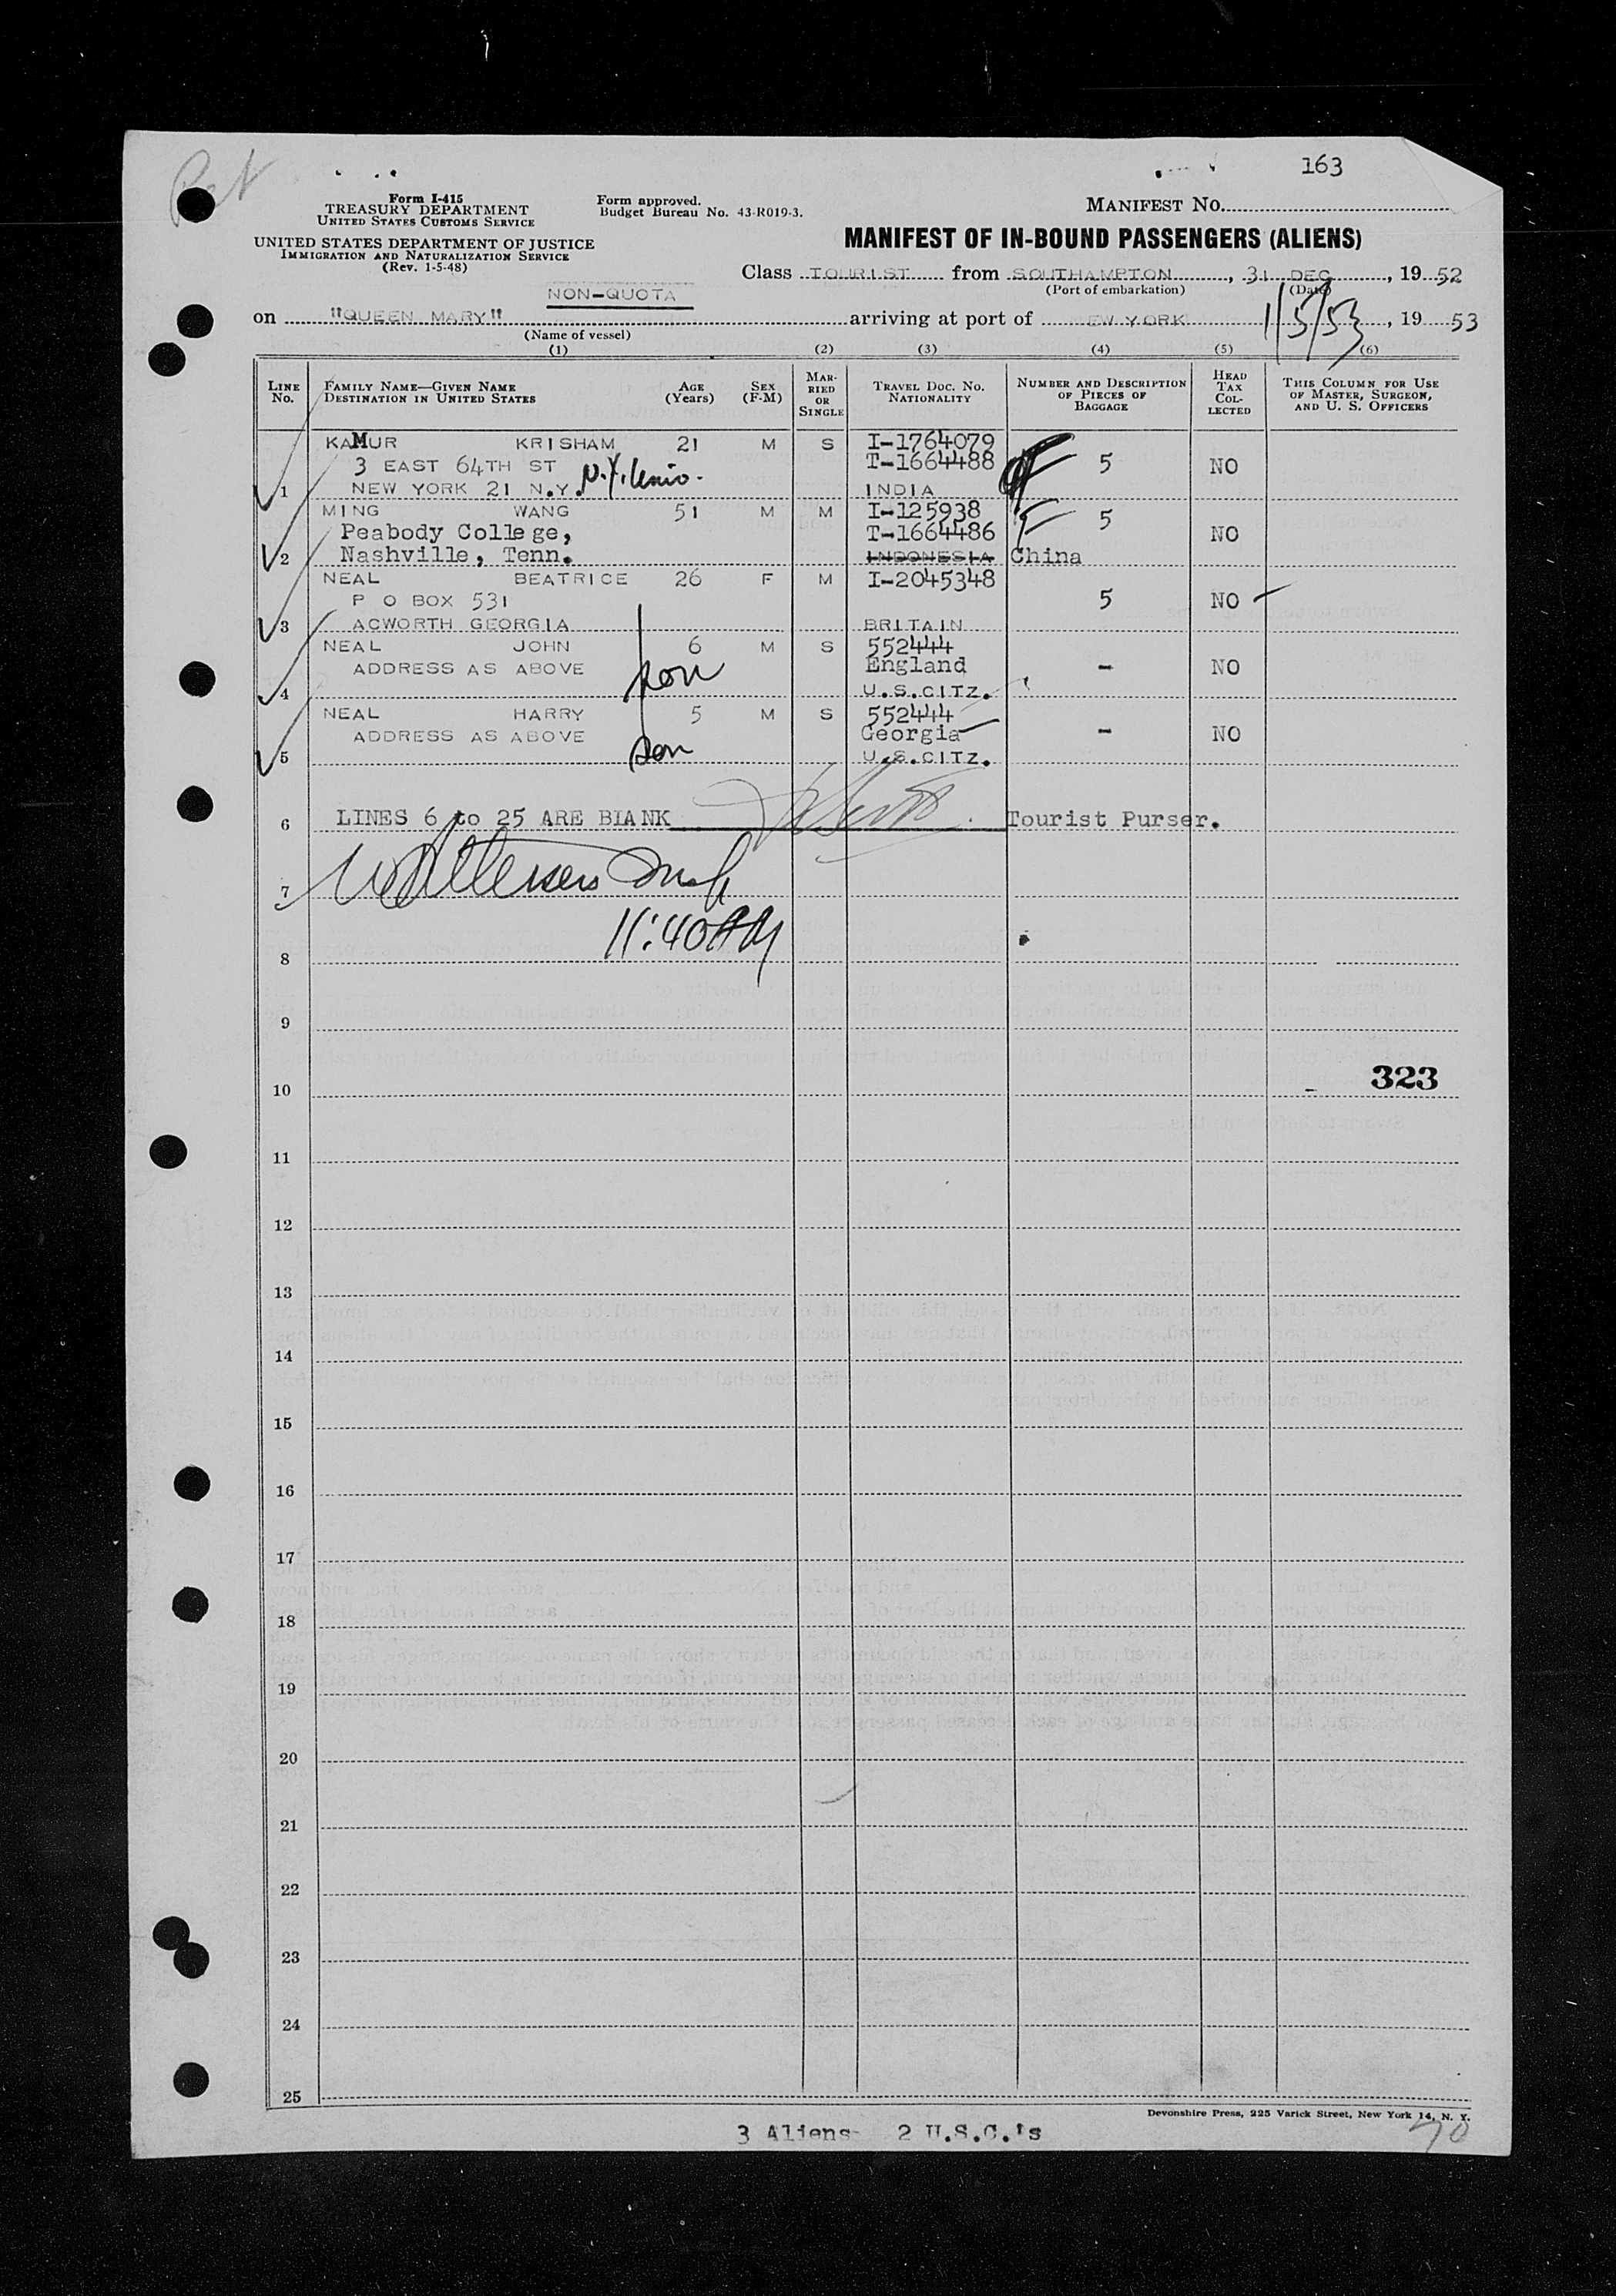 163
Form I-415
TREASURY DEPARTMENT
UNITED STATES CUSTOMS SERVICE
Form approved.
Budget Bureau No. 43-R019-3.
MANIFEST NO.
UNITED STATES DEPARTMENT OF JUSTICE
IMMIGRATION AND NATURALIZATION SERVICE
(Rev. 1-5-48)
MANIFEST OF IN-BOUND PASSENGERS (ALIENS)
Class TOURIST from SOUTHAMPTON, 31 DEC, 19 52
(Port of embarkation) (Date)
NON-QUOTA
on "QUEEN MARY" arriving at port of NEW YORK 1/5/53, 19 53
(Name of vessel)
(1) (2) (3) (4) (5) (6)
LINE No. FAMILY NAME—GIVEN NAME DESTINATION IN UNITED STATES AGE (Years) SEX (F-M) MARRIED OR SINGLE TRAVEL DOC. NO. NATIONALITY NUMBER AND DESCRIPTION OF PIECES OF BAGGAGE HEAD TAX COLLECTED THIS COLUMN FOR USE OF MASTER, SURGEON, AND U. S. OFFICERS
KAMUR KRISHAM 21 M S I-1764079
3 EAST 64TH ST T-1664488 5 NO
1 NEW YORK 21 N.Y. INDIA
MING WANG 51 M M I-125938 5
Peabody College, T-1664486 NO
2 Nashville, Tenn. INDONESIA China
NEAL BEATRICE 26 F M I-2045348
P O BOX 531 5 NO
3 ACWORTH GEORGIA BRITAIN
NEAL JOHN 6 M S 552444
ADDRESS AS ABOVE son England - NO
4 U.S.CITZ.
NEAL HARRY 5 M S 552444
ADDRESS AS ABOVE son Georgia - NO
5 U.S.CITZ.
6 LINES 6 to 25 ARE BLANK Tourist Purser.
7
11:40AM
8
9
323
10
11
12
13
14
15
16
17
18
19
20
21
22
23
24
25
Devonshire Press, 225 Varick Street, New York 14, N. Y.
3 Aliens- 2 U.S.C.'s
70